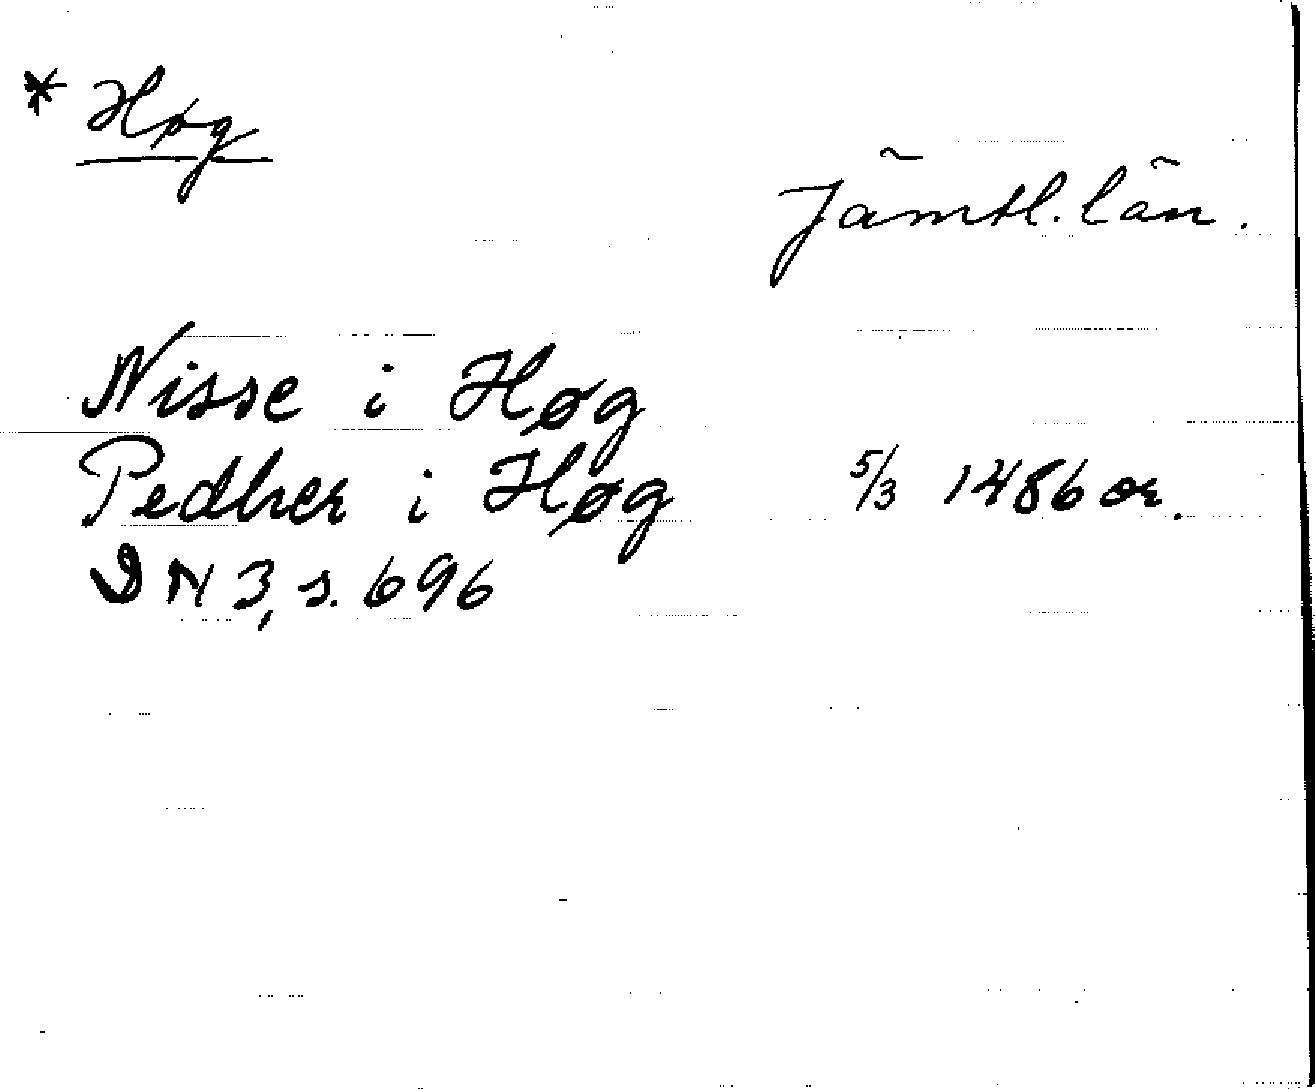 * Høg
Jämtl. län.
Nisse i Høg
Pedher i Høg 5/3 1486 or.
DN 3, s. 696